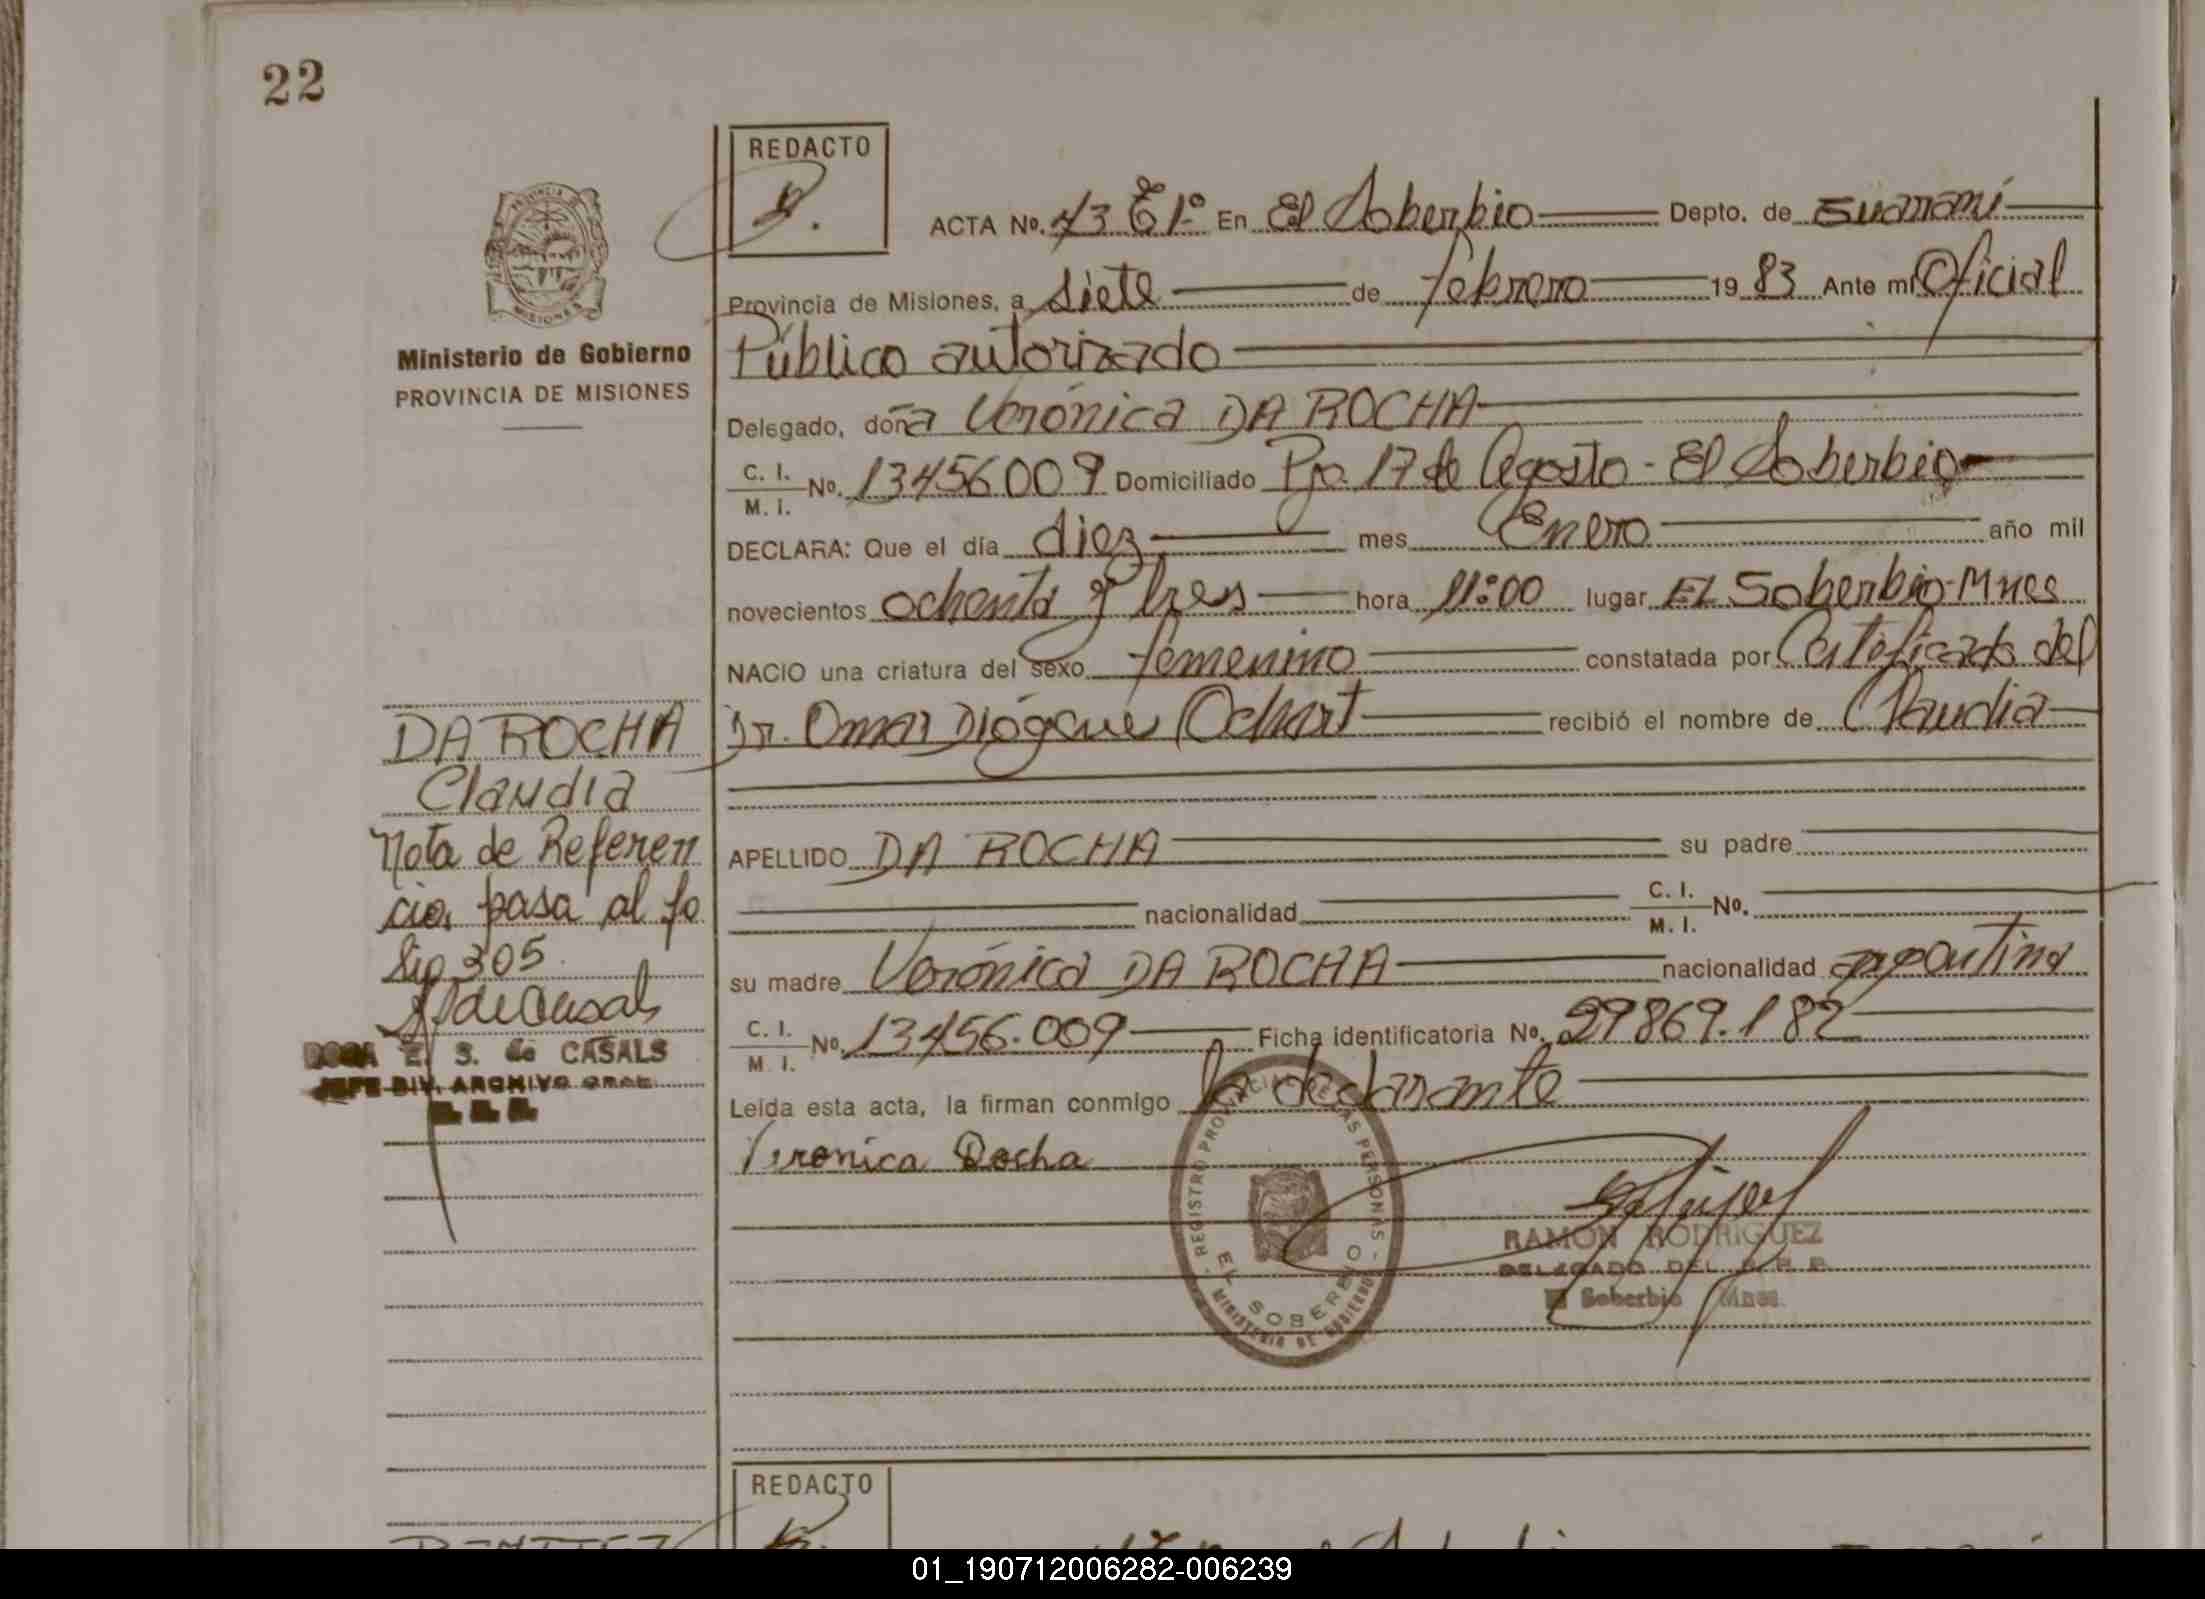 22
REDACTO
ACTA No. 43 Tº 1º En El Soberbio Depto. de Guaraní
Provincia de Misiones, a siete de febrero 19 83 Ante mí Oficial
Público autorizado
Delegado, doña Verónica DA ROCHA
C. I. M. I. No. 13456009 Domiciliado Pje. 17 de Agosto - El Soberbio
DECLARA: Que el día diez mes Enero año mil
novecientos ochenta y tres hora 11:00 lugar El Soberbio-Mnes
NACIO una criatura del sexo femenino constatada por Certificado del
Dr. Omar Diógene Ochart recibió el nombre de Claudia
APELLIDO DA ROCHA su padre
nacionalidad C. I. M. I. No.
su madre Verónica DA ROCHA nacionalidad argentina
C. I. M. I. No. 13456.009 Ficha identificatoria No. 29869.182
Leída esta acta, la firman conmigo la declarante
Veronica Rocha
REGISTRO PROVINCIAL DE LAS PERSONAS
EL SOBERBIO
MINISTERIO DE GOBIERNO
RAMON RODRIGUEZ
DELEGADO DEL R. P. P.
El Soberbio Mnes.
PROVINCIA DE
MISIONES
Ministerio de Gobierno
PROVINCIA DE MISIONES
DA ROCHA
Claudia
Nota de Referen
cia, pasa al fo
lio 305
E. S. de CASALS
JEFE DIV. ARCHIVO GRAL.
REDACTO
01_190712006282-006239